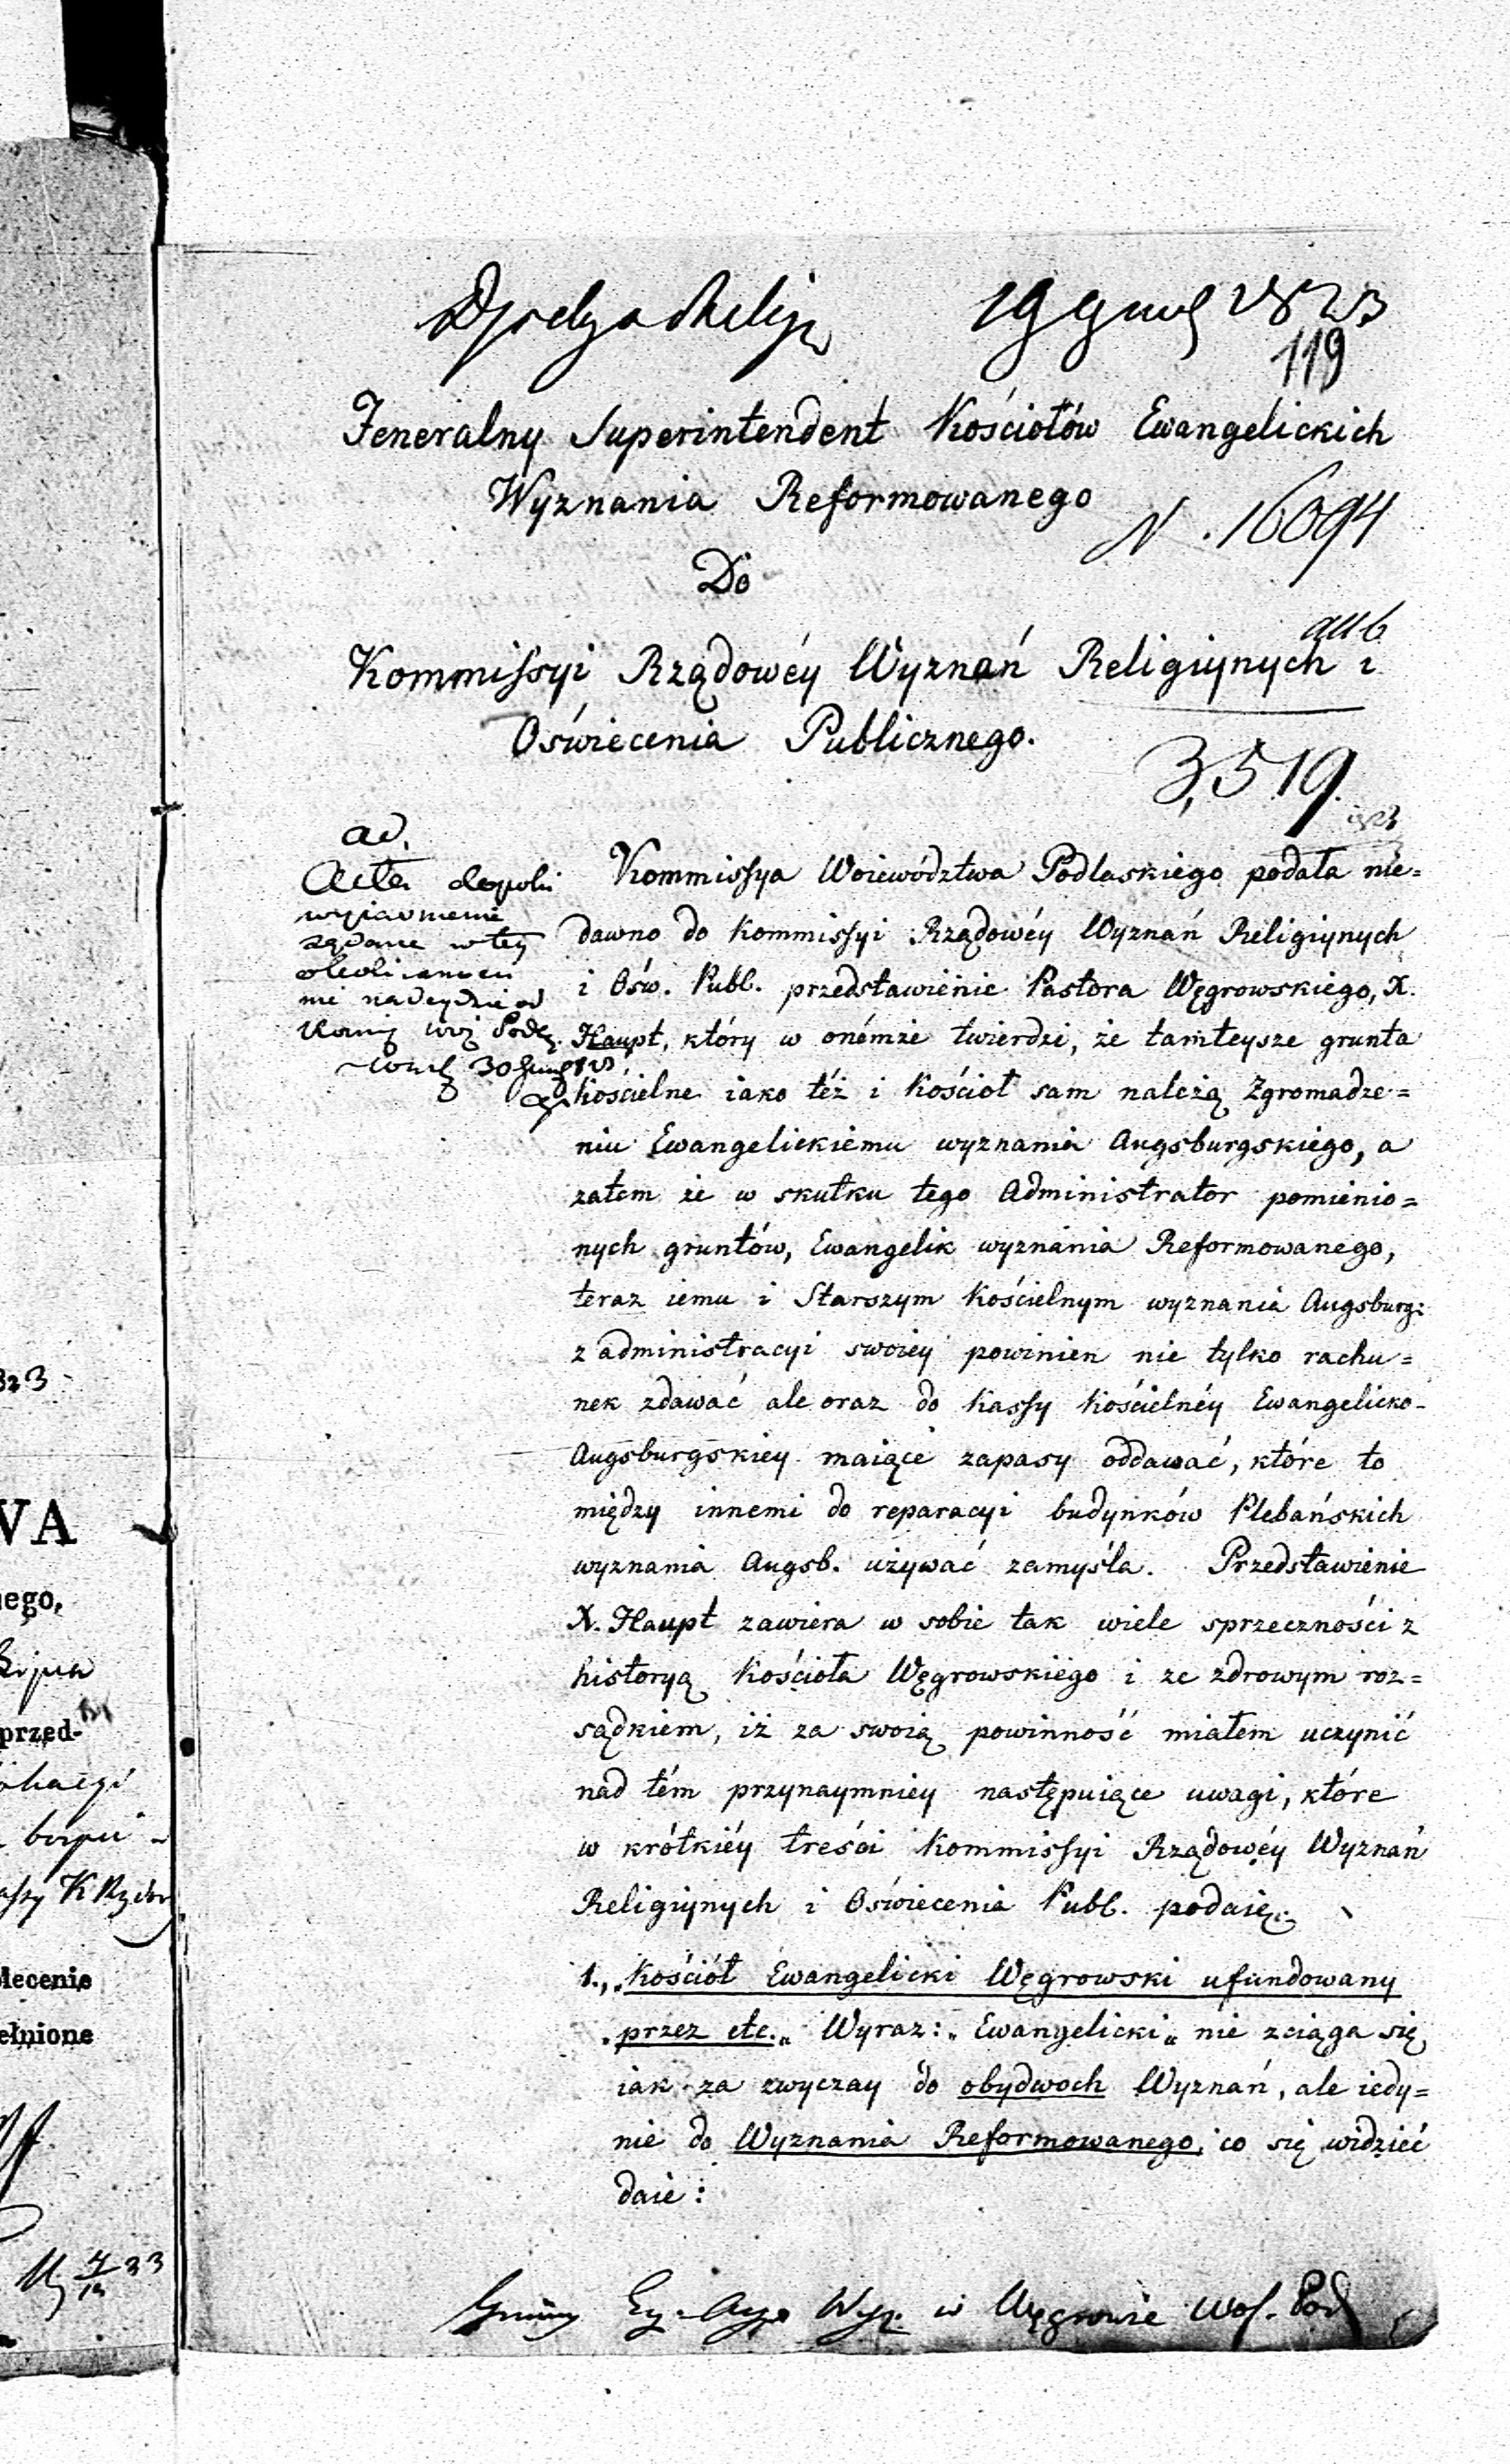 1823
119
Jeneralny Superintendent Kościołów Ewangelickich
Wyznania Reformowanego
N. 16094
Do
Kommissyi Rządowéy Wyznań Religiynych i
Oświecenia Publicznego.
3,519.
ad.
Acta
Kommissya Woiewództwa Podlaskiego podała nie=
dawno do Kommissyi Rządowéy Wyznań Religiynych
i Ośw. Publ. przedstawienie Pastora Węgrowskiego, X.
Haupt, który w onémże twierdzi, że tamteysze grunta
kościelne iako też i kościoł sam należą Zgromadze=
niu Ewangelickiemu wyznania Augsburgskiego, a
zatem że w skutku tego Administrator pomienio=
nych gruntów, Ewangelik wyznania Reformowanego,
teraz iemu i Starszym Kościelnym wyznania Augsburg:
z administracyi swoiey powinien nie tylko rachu=
nek zdawać ale oraz do Kassy Kościelnéy Ewangelicko-
Augsburgskiey maiące zapasy oddawać, które to
między innemi do reparacyi budynków Plebańskich
wyznania Augsb. używać zamyśla. Przedstawienie
X. Haupt zawiera w sobie tak wiele sprzeczności z
historyą Kościoła Węgrowskiego i ze zdrowym roz=
sądkiem, iż za swoią powinność miałem uczynić
nad tém przynaymniey następuiące uwagi, które
w krótkiéy treści Kommissyi Rządowéy Wyznań
Religiynych i Oświecenia Publ. podaię:
1., „Kościół Ewangelicki Węgrowski ufundowany
„przez etc.„ Wyraz: „Ewangelicki„ nie zciąga się
iak za zwyczay do obydwoch Wyznań, ale iedy=
nie do Wyznania Reformowanego, co się widzieć
daie:
Gminy Ew. Aug. Wyz. w Węgrowie Woj. Pod
823
WA
nego,
przed-
lecenie
ełnione